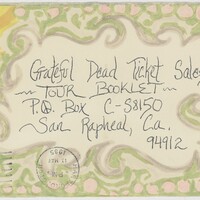 Grateful Dead Ticket Sales
~ TOUR BOOKLET ~
P.O. Box C-S8150
San Rapheal, Ca.
94912